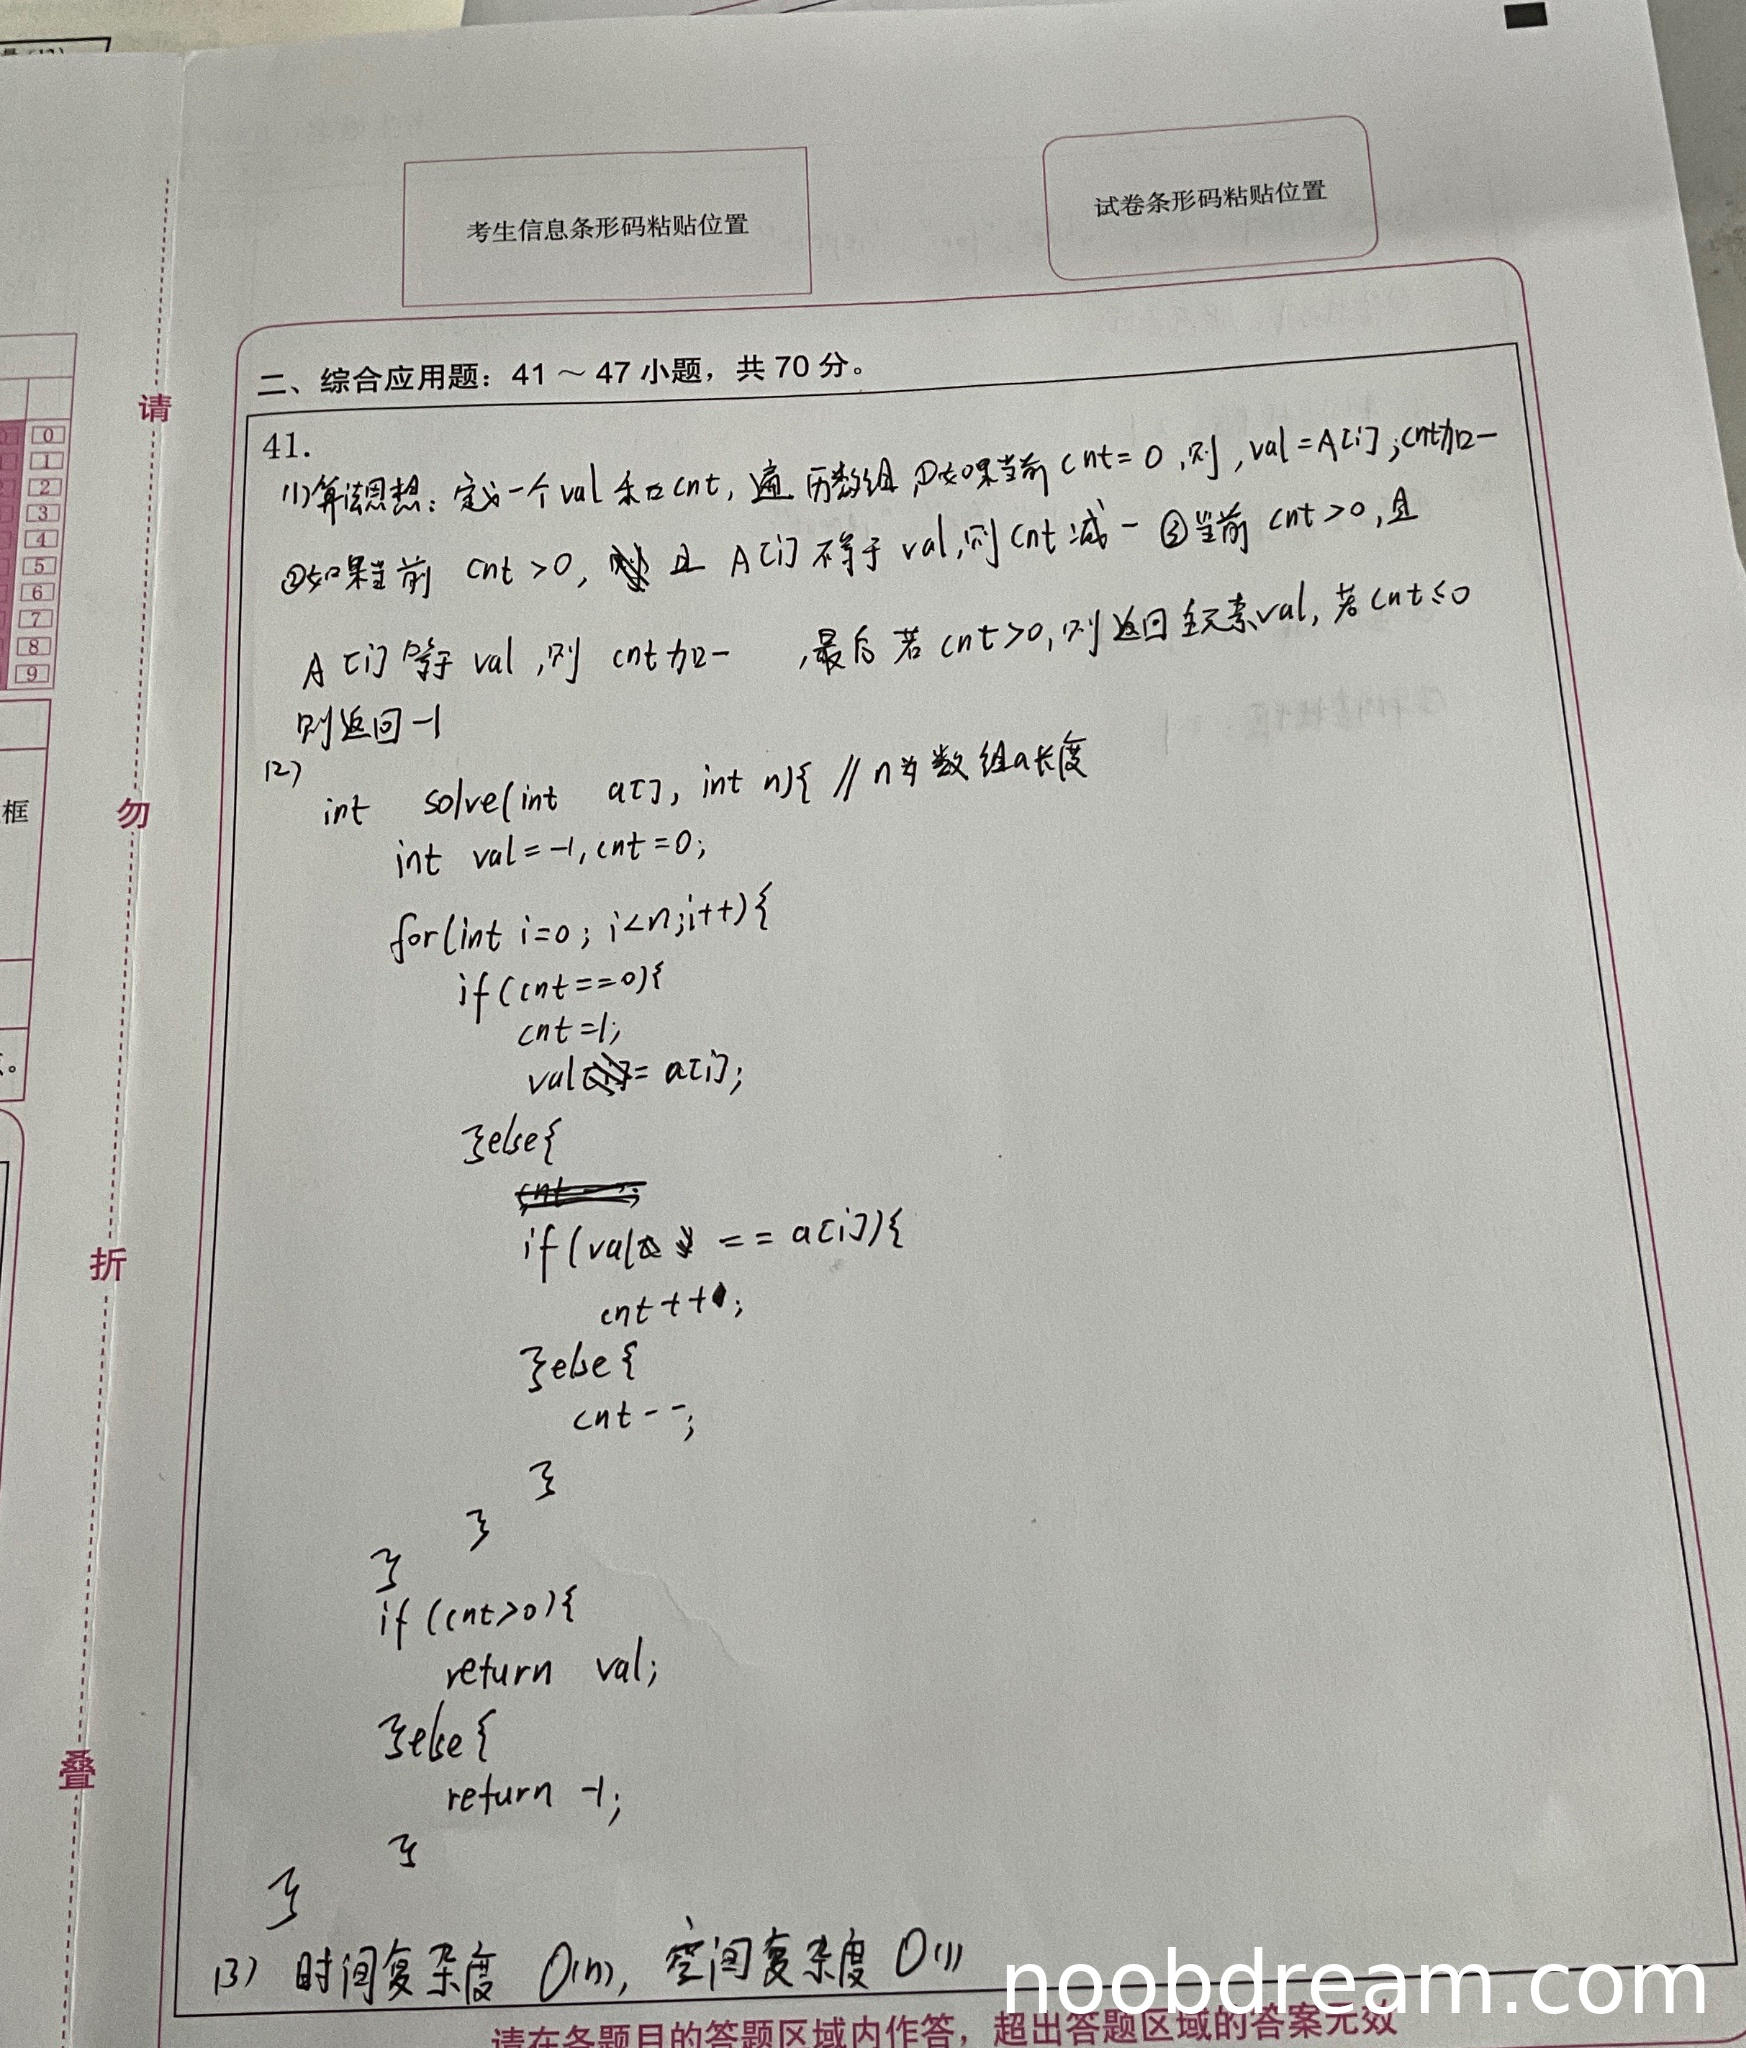 考生信息条形码粘贴位置
试卷条形码粘贴位置
二、综合应用题：41 ～ 47 小题，共 70 分。
41.
(1)算法思想：定义一个val和cnt，遍历数组，①如果当前cnt=0，则，val=A[i]；cnt加一
②如果当前 cnt>0，且 A[i] 不等于 val，则 cnt 减一 ③当前 cnt>0，且
A[i] 等于 val，则 cnt加一，最后若 cnt>0，则返回主元素val，若cnt≤0
则返回-1
(2)
int solve(int a[], int n){ // n为数组a长度
int val=-1,cnt=0;
for(int i=0; i<n;i++){
if(cnt==0){
cnt=1;
val = a[i];
}else{
if(val == a[i]){
cnt++;
}else{
cnt--;
}
}
}
if(cnt>0){
return val;
}else{
return -1;
}
}
(3) 时间复杂度 O(n)，空间复杂度 O(1)
请在各题目的答题区域内作答，超出答题区域的答案无效
请
勿
折
叠
框
0
1
2
3
4
5
6
7
8
9
noobdream.com